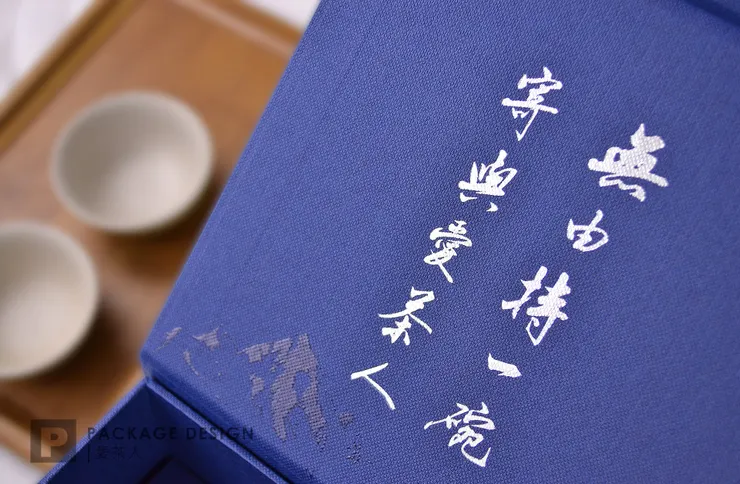 無由持一碗
寄與愛茶人
P
PACKAGE DESIGN